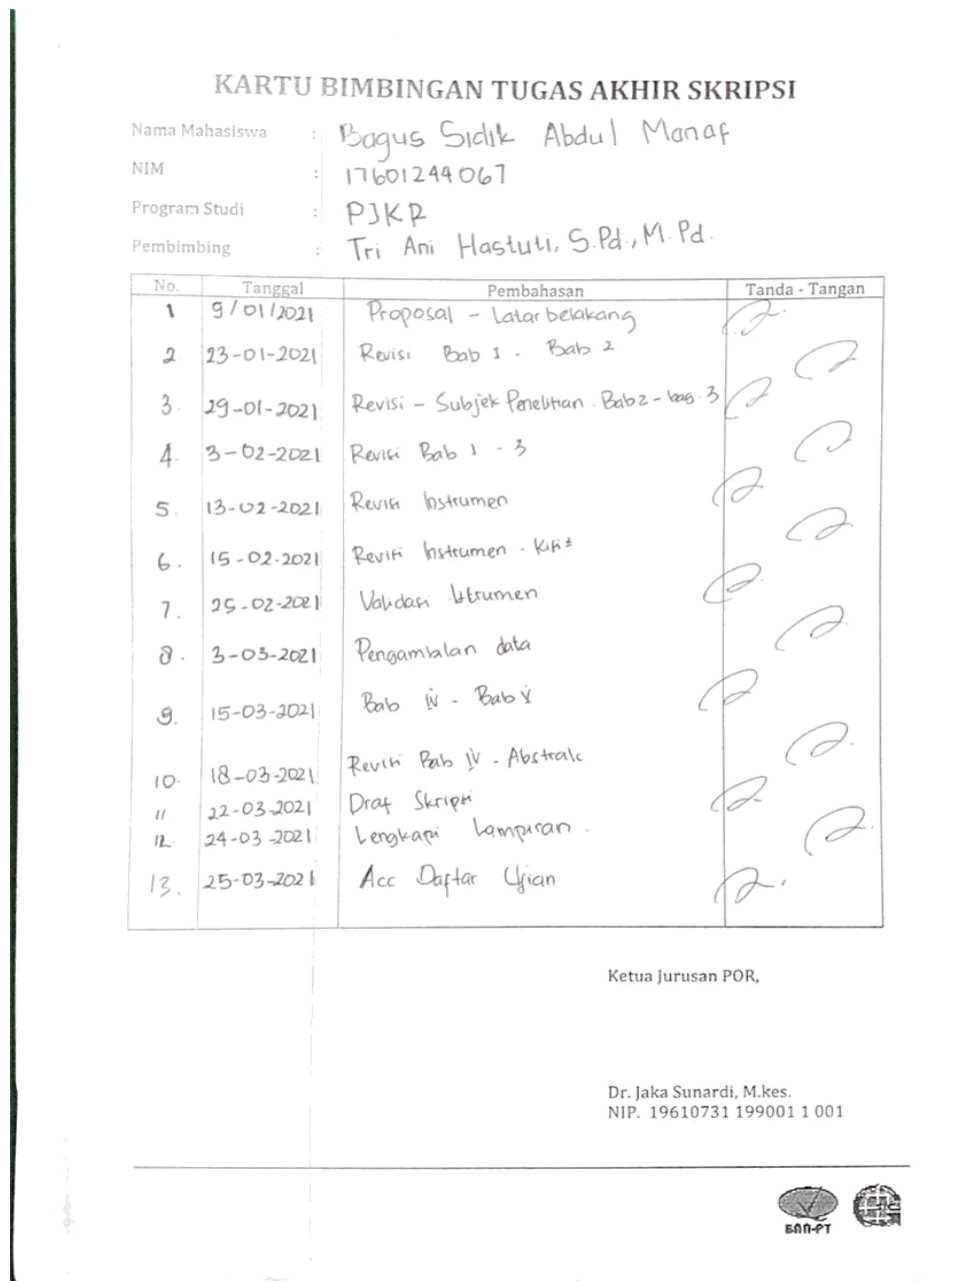 KARTU BIMBINGAN TUGAS AKHIR SKRIPSI
Nama Mahasiswa : Bagus Sidik Abdul Manaf
NIM : 17601244067
Program Studi : PJKR
Pembimbing : Tri Ani Hastuti, S.Pd., M.Pd.
No. Tanggal Pembahasan Tanda - Tangan
1 9/01/2021 Proposal - Latar belakang
2 23-01-2021 Revisi Bab 1 - Bab 2
3. 29-01-2021 Revisi - Subjek Penelitian. Bab 2 - bag. 3
4. 3-02-2021 Revisi Bab 1 - 3
5. 13-02-2021 Revisi Instrumen
6. 15-02-2021 Revisi Instrumen -
7. 25-02-2021 Validasi
8. 3-03-2021 Pengambalan data
9. 15-03-2021 Bab IV - Bab V
10. 18-03-2021 Revisi Bab IV - Abstrak
11 22-03-2021 Draf Skripsi
12. 24-03-2021 Lengkapi Lampiran.
13. 25-03-2021 Acc Daftar Ujian
Ketua Jurusan POR,
Dr. Jaka Sunardi, M.kes.
NIP. 19610731 199001 1 001
BAN-PT